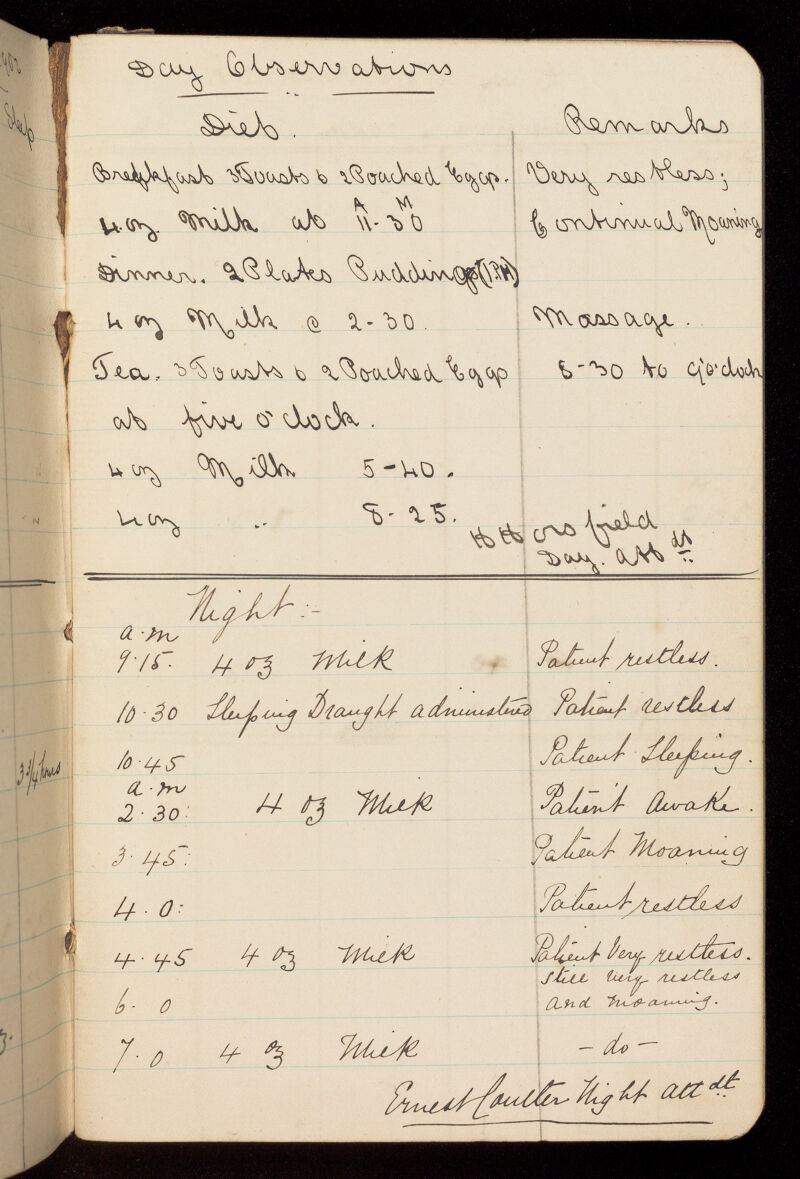 1902
Sleep
3 3/4 hours
Day Observations
Diet. Remarks
Breakfast 3 Toasts & 2 Poached Eggs. Very restless;
4 oz. Milk at 11-30 AM Continual Moaning
Dinner. 2 Plates Puddings (1 P.M)
4 oz Milk @ 2-30. Massage.
Tea. 3 Toasts & 2 Poached Eggs 8-30 to 9 o'clock
at five o'clock.
4 oz Milk 5-40.
4 oz " 8-25.
H H Horsfield
Day. Att dt
Night :-
a.m
9.15. 4 oz Milk Patient restless.
10.30 Sleeping Draught administered Patient restless
10.45 Patient Sleeping.
a.m
2.30: 4 oz Milk Patient Awake.
3.45: Patient Moaning
4.0: Patient restless
4.45 4 oz Milk Patient Very restless.
6.0 Still very restless
and moaning.
7.0 4 oz Milk - do -
Ernest Coulter Night Att dt.